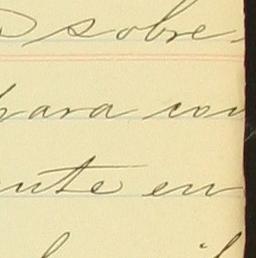 sobre
para con
nte en